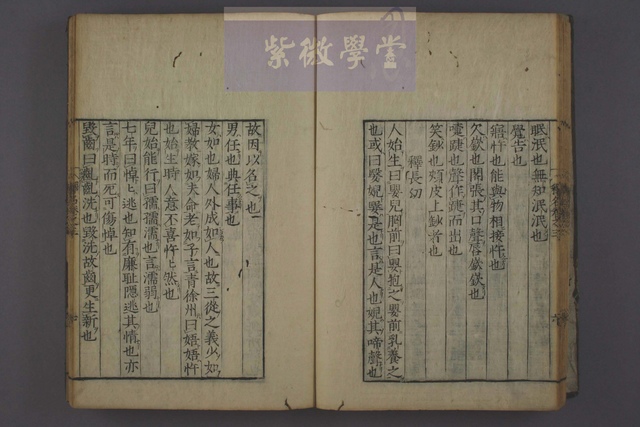 紫微學堂
眠泯也無知泯泯也
覺告也
寤忤也能與物相接忤也
欠嶔也開張其口聲脣嶔嶔也
嚏踕也聲作踕而出也
笑鈔也頰皮上鈔者也
釋長幼
人始生曰嬰兒胷前曰嬰抱之嬰前乳養之
也或曰嫛婗嫛是也言是人也婗其啼聲也
故因以名之也
男任也典任事也
女如也婦人外成如人也故三從之義少如
婦教嫁如夫命老如子言青徐州曰娪娪忤
也始生時人意不喜忤忤然也
兒始能行曰孺孺濡也言濡弱也
七年曰悼悼逃也知有廉耻隱逃其情也亦
言是時而死可傷悼也
毀齒曰齔齔洗也毀洗故齒更生新也